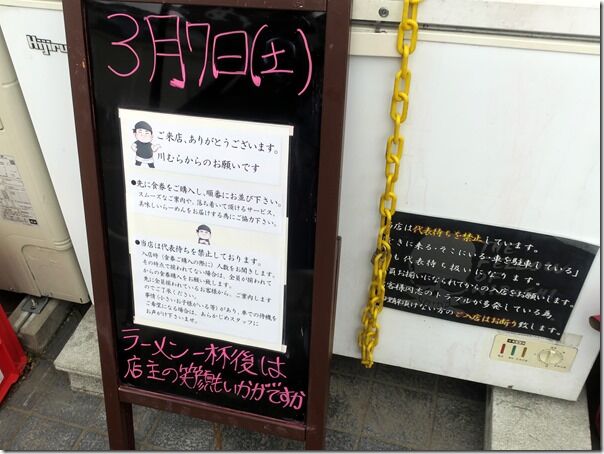 Hijiru
3月7日(土)
ご来店、ありがとうございます。
川むらからのお願いです
●先に食券をご購入し、順番にお並び下さい。
スムーズなご案内や、落ち着いて頂けるサービス、
美味しいらーめんをお届けする為にご協力下さい。
●当店は代表待ちを禁止しております。
入店時(食券ご購入の際に)人数をお聞きします。
その時点で揃われてない場合は、全員が揃われて
からの食券購入をお願い致します。
先に全員揃われているお客様から、ご案内します
のでご了承ください。
事情(小さいお子様がいる等)があり、車での待機を
ご希望になる場合は、あらかじめスタッフに
お声がけ下さいませ。
ラーメン一杯後は
店主の笑顔もいかがですか
店は代表待ちを禁止しています。
きに来る・そこにいる・車を駐車している」
も代表待ち扱いとなります。
員お揃いになられてからの入店をお願いします。
客様同志のトラブルが多発している為、
理解頂けない方のご入店はお断り致します。